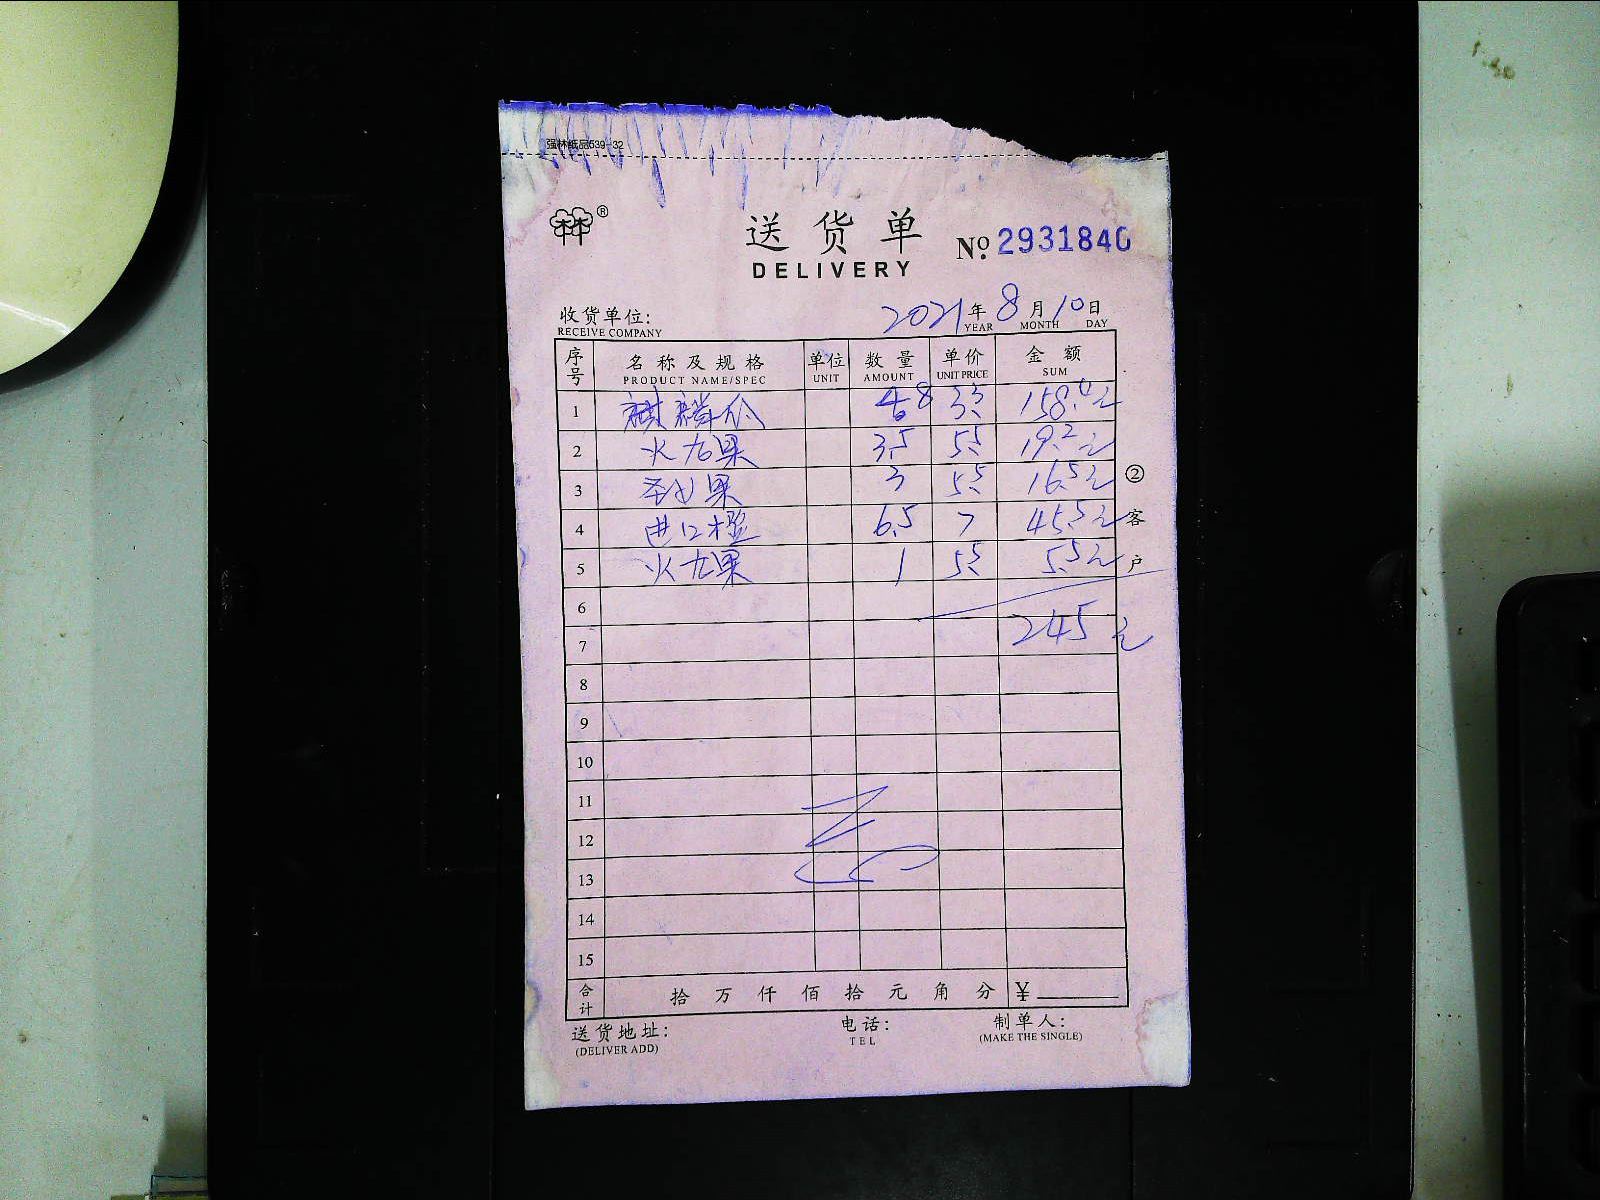 强林纸品539-32
送货单
DELIVERY
№ 2931840
收货单位:
RECEIVE COMPANY
2021年 8月 10日
YEAR MONTH DAY
序号 名称及规格 单位 数量 单价 金额
PRODUCT NAME/SPEC UNIT AMOUNT UNIT PRICE SUM
1 麒麟瓜 48 3.3 158.4元
2 火龙果 3.5 5.5 19.2元
3 圣女果 3 5.5 16.5元
4 进口橙 6.5 7 45.5元
5 火龙果 1 5.5 5.5元
6
7 245元
8
9
10
11
12
13
14
15
②客户
合计 拾 万 仟 佰 拾 元 角 分 ¥
送货地址: 电话: 制单人:
(DELIVER ADD) TEL (MAKE THE SINGLE)